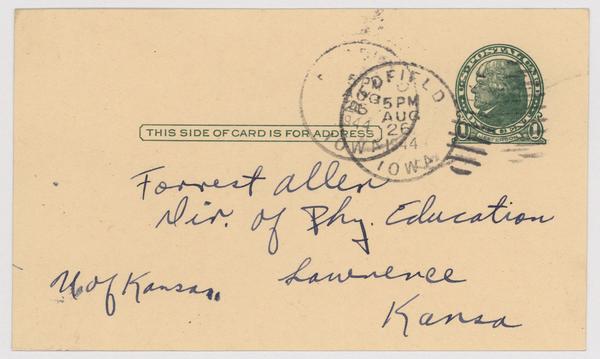 U.S. POSTAL CARD
ONE CENT
DFIELD
5 PM
AUG
26
1944
IOWA
IOWA
THIS SIDE OF CARD IS FOR ADDRESS
Forrest Allen
Dir. of Phy. Education
Lawrence
U of Kansas.
Kansa